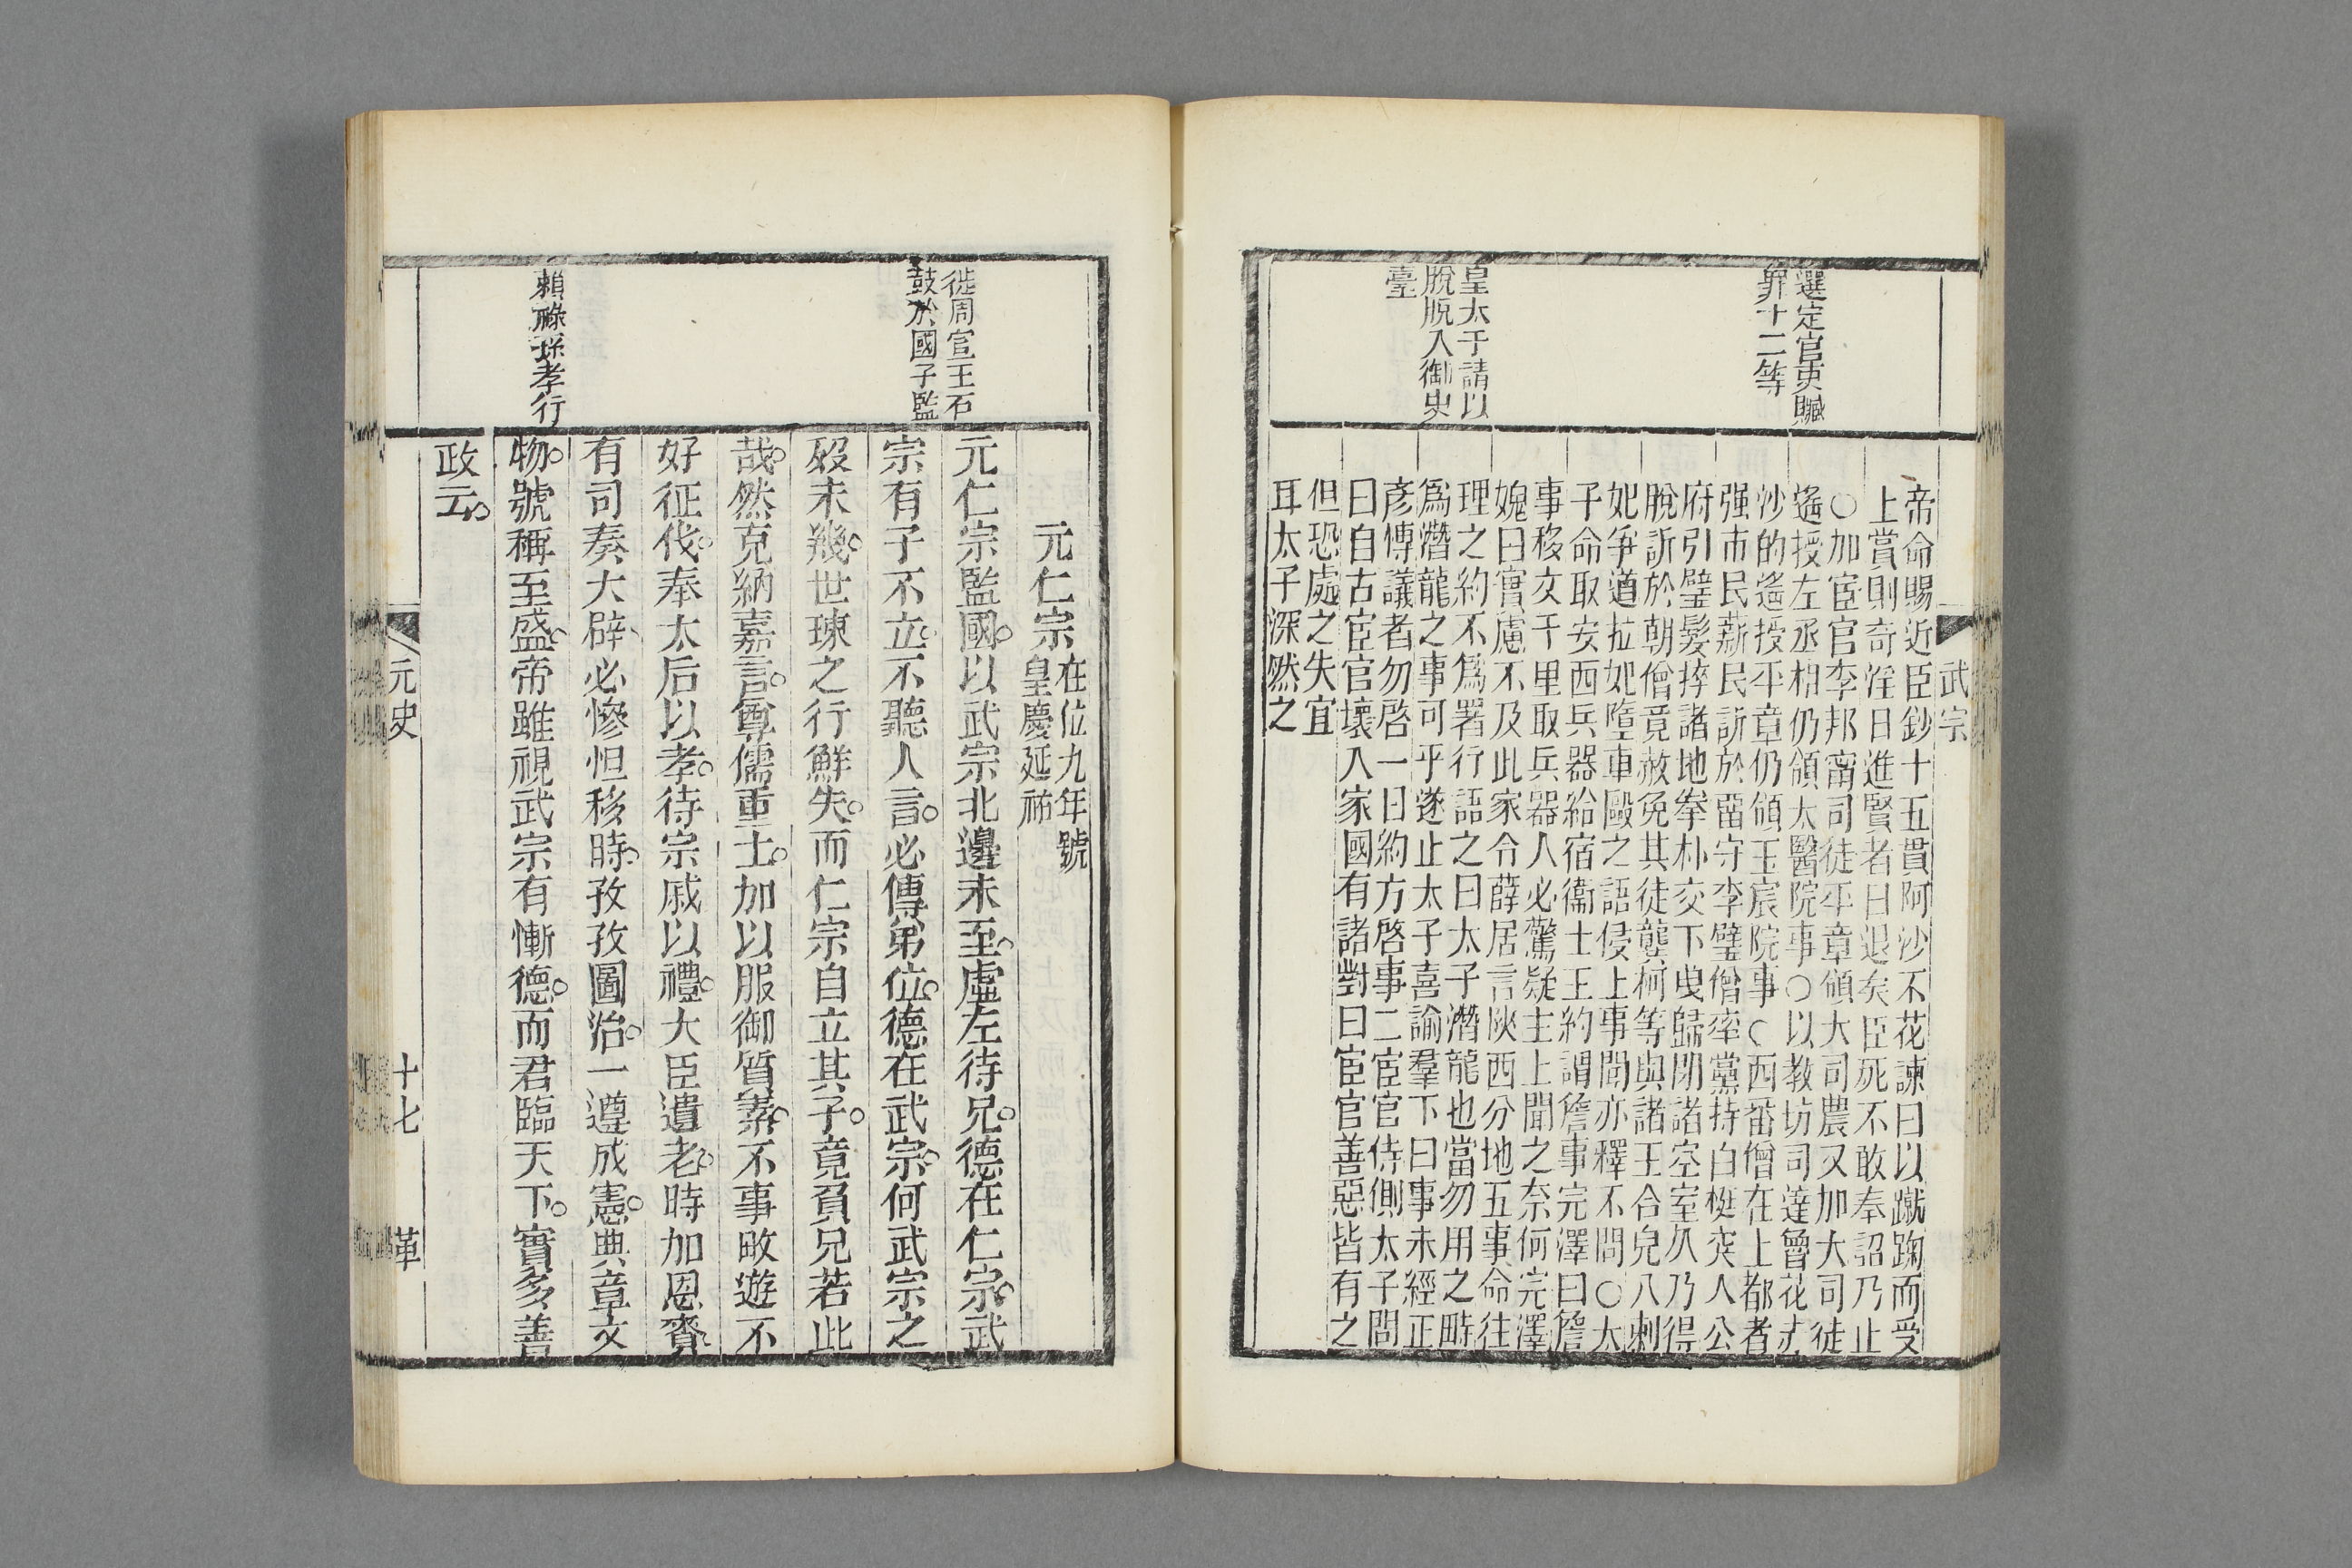 武宗
選定官吏贓
罪十二等
皇太子請以
脫脫入御史
臺
帝命賜近臣鈔十五貫阿沙不花諫曰以蹴踘而受
上賞則奇淫日進賢者日退矣臣死不敢奉詔乃止
○加宦官李邦甯司徒平章領大司農又加大司徒
遙授左丞相仍領太醫院事○以教坊司達魯花赤
沙的遙授平章仍領玉宸院事○西番僧在上都者
强市民薪民訴於留守李璧僧率黨持白梃突入公
府引璧髮捽諸地拳朴交下曳歸閉諸空室久乃得
脫訴於朝僧竟赦免其徒龔柯等與諸王合兒八剌
妃爭道拉妃墮車毆之語侵上事聞亦釋不問○太
子命取安西兵器給宿衞士王約謂詹事完澤曰詹
事移文千里取兵器人必驚疑主上聞之奈何完澤
媿曰實慮不及此家令薛居言陝西分地五事命往
理之約不爲署行語之曰太子潛龍也當勿用之時
爲潛龍之事可乎遂止太子喜諭羣下曰事未經正
彥傅議者勿啓一日約方啓事二宦官侍側太子問
曰自古宦官壞人家國有諸對曰宦官善惡皆有之
但恐處之失宜
耳太子深然之
徙周宣王石
鼓於國子監
賴祿孫孝行
元仁宗在位九年號
皇慶延祐
元仁宗監國以武宗北邊未至虛左待兄德在仁宗武
宗有子不立不聽人言必傳弟位德在武宗何武宗之
歿未幾世㻋之行鮮失而仁宗自立其子竟負兄若此
哉然克納嘉言尊儒重士加以服御質素不事畋遊不
好征伐奉太后以孝待宗戚以禮大臣遺老時加恩賚
有司奏大辟必慘怛移時孜孜圖治一遵成憲典章文
物號稱至盛帝雖視武宗有慚德而君臨天下實多善
政云
元史
十七
革